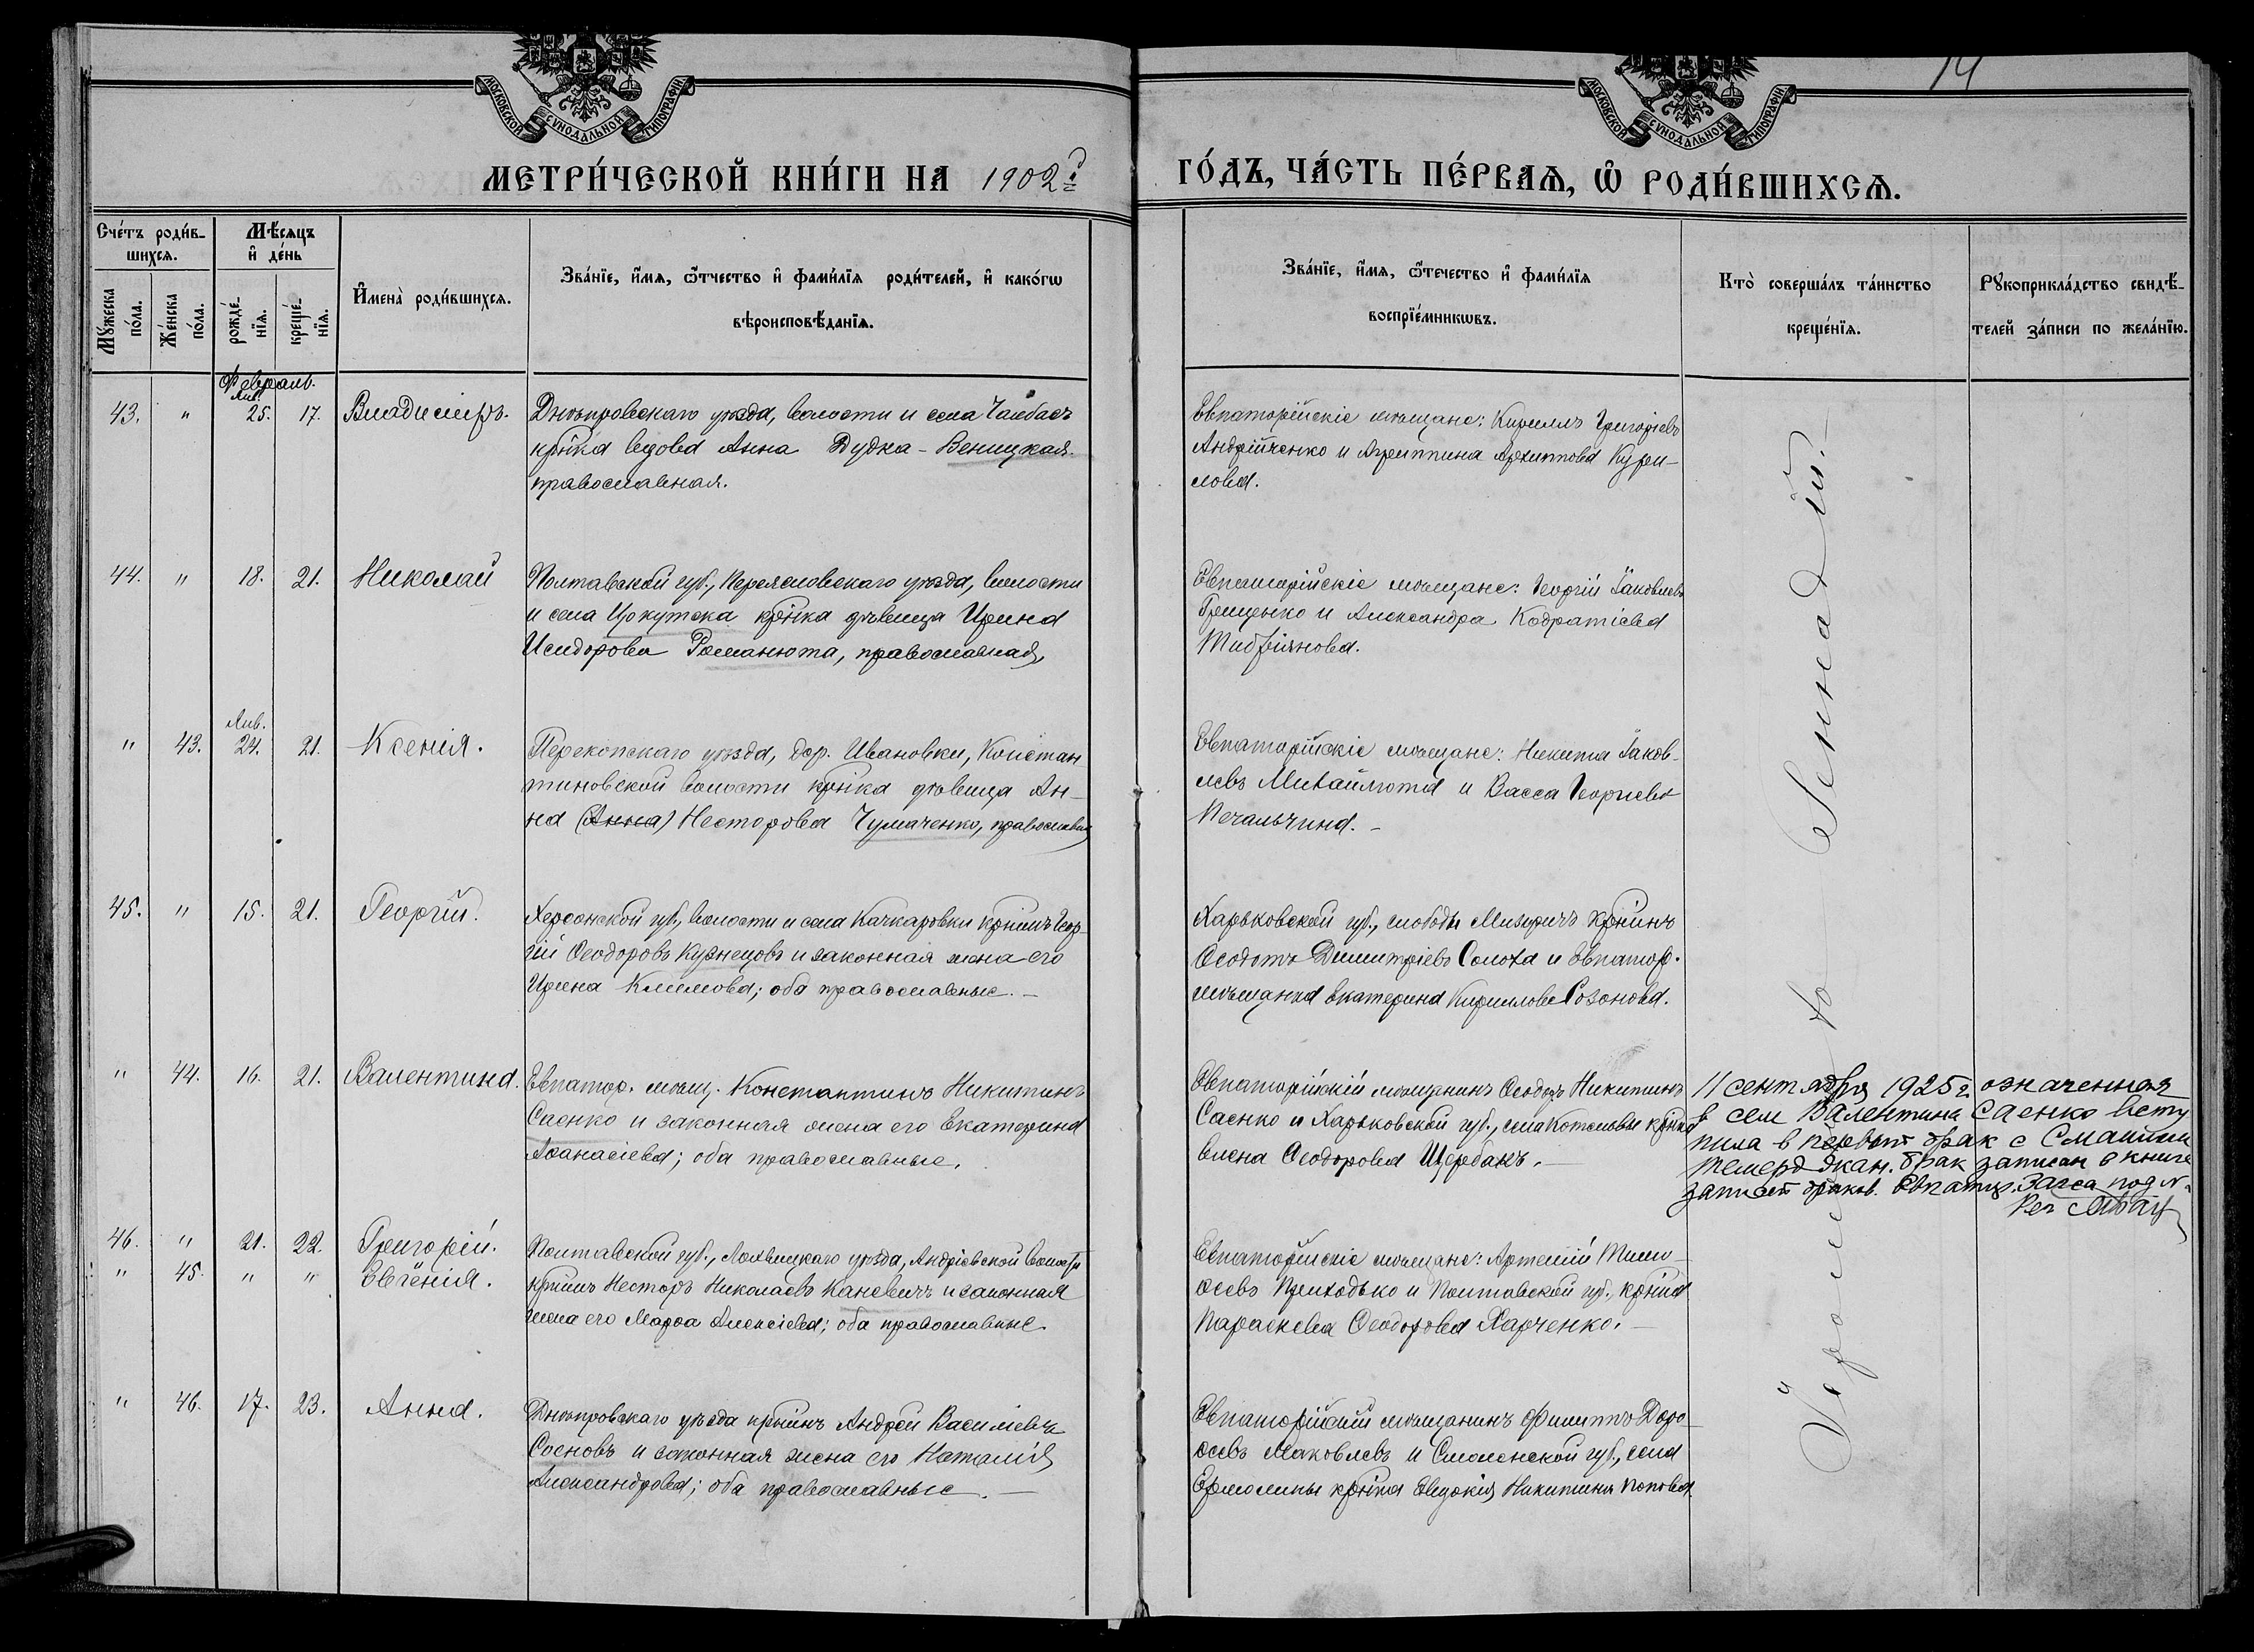 14
МОСКОВСКОЙ СУНОДАЛЬНОЙ ТИПОГРАФІИ
МОСКОВСКОЙ СУНОДАЛЬНОЙ ТИПОГРАФІИ
МЕТРИ́ЧЕСКОЙ КНИ́ГИ НА 1902й ГО́ДЪ, ЧА́СТЬ ПЕ́РВАѦ, Ѡ҆ РОДИ́ВШИХСѦ.
Сче́тъ роди́в-
шихсѧ.
Мꙋ́жеска
по́ла.
Же́нска
по́ла.
Мѣ́сѧцъ
и҆ де́нь
рожде́-
нїѧ.
креще́-
нїѧ.
И҆мена̀ роди́вшихсѧ.
Зва́нїе, и҆́мѧ, ѻ҆́тчество и҆ фами́лїѧ роди́телей, и҆ како́гѡ
вѣроисповѣ́данїѧ.
Зва́нїе, и҆́мѧ, ѻ҆́течество и҆ фами́лїѧ
воспрїе́мникѡвъ.
Кто̀ соверша́лъ та́инство
креще́нїѧ.
Рꙋкоприкла́дство свидѣ́-
телей за́писи по жела́нїю.
Февраль.
Янв.
43. " 25. 17. Владиміръ.
Днѣпровскаго уѣзда, волости и села Чалбасъ
кр̃нка вдова Анна Дудка-Веницкая
православная.
Евпаторійскіе мѣщане: Кириллъ Григоріевъ
Андрійченко и Агриппина Архиппова Кури-
лова.
44. " 18. 21. Николай
Полтавской губ., Переяславскаго уѣзда, волости
и села Иркутска кр̃нка дѣвица Ирина
Исидорова Романюта, православная,
Евпаторійскіе мѣщане: Георгій Іаковлевъ
Грищенко и Александра Кодратіева
Янв.
" 43. 24. 21. Ксенія.
Перекопскаго уѣзда, дер. Ивановки, Констан-
тиновской волости кр̃нка дѣвица Ан-
на (Анна) Несторова Чумаченко, православная
Евпаторійскіе мѣщане: Никита Іаков-
левъ Михайлюта и Васса Георгіева
Печальчина. -
45. " 15. 21. Георгій.
Херсонской губ., волости и села Качкаровки кр̃нинъ Геор-
гій Ѳеодоровъ Кузнецовъ и законная жена его
Ирина Климова; оба православные. -
Харьковской губ., слободы кр̃нинъ
Ѳеодотъ Димитріевъ Солоха и Евпатор.
мѣщанка Екатерина Кириллова Созонова.
" 44. 16. 21. Валентина.
Евпатор. мѣщ. Константинъ Никитинъ
Саенко и законная жена его Екатерина
Аѳанасіева; оба православные.
Евпаторійскій мѣщанинъ Ѳеодоръ Никитинъ
Саенко и Харьковской губ., села Котельвы кр̃нка
Елена Ѳеодорова Щербакъ. -
11 сентября 1925 г. означенная
в сем Валентина Саенко всту
пила в первый брак с
брак записан в книге
записей браков. Евпатор. Загса под №
46. " 21. 22. Григорій.
" 45. " " Евгенія.
Полтавской губ., Лохвицкаго уѣзда, Андріевской волости
кр̃нинъ Несторъ Николаевъ Каневичъ и законная
жена его Марѳа Алексіева; оба православные.
Евпаторійскіе мѣщане: Артемій Тимо-
ѳеевъ Приходько и Полтавской губ., кр̃нка
Параскева Ѳеодорова Харченко. -
" 46. 17. 23. Анна.
Днѣпровскаго уѣзда кр̃нинъ Андрей Василіевъ
Сосновъ и законная жена его Наталія
Александрова; оба православные. -
Евпаторійскій мѣщанинъ Филиппъ Доро-
ѳеевъ Маковлевъ и Смоленской губ., села
Ермолины кр̃нка Евдокія Никитина Попова.